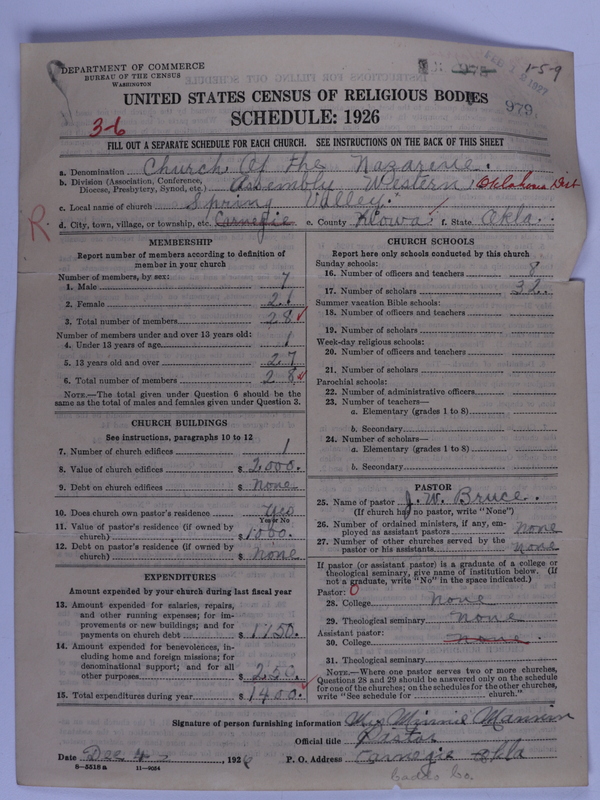 DEPARTMENT OF COMMERCE
BUREAU OF THE CENSUS
WASHINGTON
FEB 12 1927
1-5-9
UNITED STATES CENSUS OF RELIGIOUS BODIES
SCHEDULE: 1926
979
3-6
FILL OUT A SEPARATE SCHEDULE FOR EACH CHURCH. SEE INSTRUCTIONS ON THE BACK OF THIS SHEET
a. Denomination Church Of the Nazarene.
b. Division (Association, Conference, Diocese, Presbytery, Synod, etc.) Assembly Western Oklahoma Dist
c. Local name of church Spring Valley.
R.
d. City, town, village, or township, etc. Carnegie e. County Kiowa f. State Okla.
MEMBERSHIP
Report number of members according to definition of
member in your church
Number of members, by sex:
1. Male 7
2. Female 21
3. Total number of members 28
Number of members under and over 13 years old:
4. Under 13 years of age 1
5. 13 years old and over 27
6. Total number of members 28
NOTE.—The total given under Question 6 should be
same as the total of males and females given under Question 3.
CHURCH BUILDINGS
See instructions, paragraphs 10 to 12
7. Number of church edifices 1
8. Value of church edifices $ 2,000.
9. Debt on church edifices $ none
10. Does church own pastor's residence Yes
Yes or No
11. Value of pastor's residence (if owned by
church) $ 1000.
12. Debt on pastor's residence (if owned by
church) $ none
EXPENDITURES
Amount expended by your church during last fiscal year
13. Amount expended for salaries, repairs,
and other running expenses; for im-
provements or new buildings; and for
payments on church debt $ 1150.
14. Amount expended for benevolences, in-
cluding home and foreign missions; for
denominational support; and for all
other purposes $ 250.
15. Total expenditures during year $ 1400.
CHURCH SCHOOLS
Report here only schools conducted by this church
Sunday schools:
16. Number of officers and teachers 8
17. Number of scholars 32
Summer vacation Bible schools:
18. Number of officers and teachers
19. Number of scholars
Week-day religious schools:
20. Number of officers and teachers
21. Number of scholars
Parochial schools:
22. Number of administrative officers
23. Number of teachers—
a. Elementary (grades 1 to 8)
b. Secondary
24. Number of scholars—
a. Elementary (grades 1 to 8)
b. Secondary
PASTOR
25. Name of pastor J. W. Bruce.
(If church has no pastor, write "None")
26. Number of ordained ministers, if any, em-
ployed as assistant pastors none
27. Number of other churches served by the
pastor or his assistants none
If pastor (or assistant pastor) is a graduate of a college or
theological seminary, give name of institution below. (If
not a graduate, write "No" in the space indicated.)
Pastor: 0
28. College none
29. Theological seminary none
Assistant pastor:
30. College none
31. Theological seminary
NOTE.—Where one pastor serves two or more churches,
Questions 28 and 29 should be answered only on the schedule
for one of the churches; on the schedules for the other churches,
write "See schedule for church."
Signature of person furnishing information Minnie
Official title Pastor
Date Dec 4, 1926 P. O. Address Carnegie Okla
8-5518a 11-9054
Caddo Co.